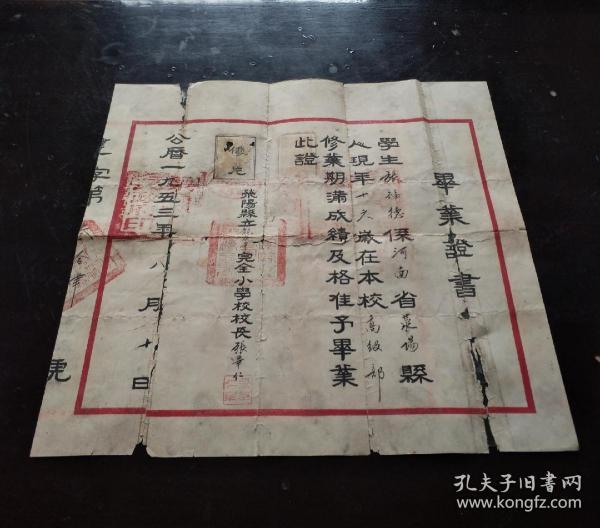 畢業證書
學生 係河南省滎陽縣
人現年十六歲在本校高級部
修業期滿成績及格准予畢業
此證
像片
滎陽縣立 完全小學校校長張 仁
公曆一九五三年八月十日
字第 號
孔夫子旧书网
www.kongfz.com